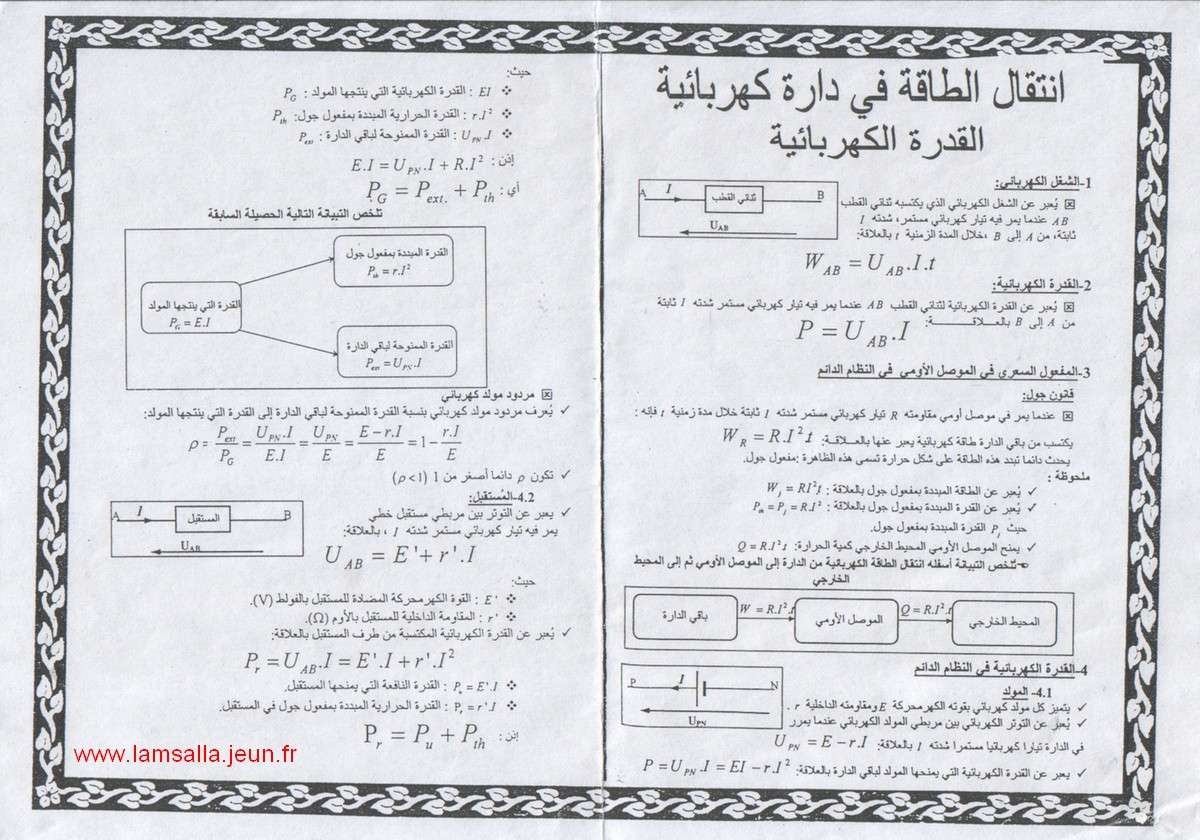 انتقال الطاقة في دارة كهربائية
القدرة الكهربائية
1-الشغل الكهربائي:
A I ثنائي القطب B
U_AB
يُعبر عن الشغل الكهربائي الذي يكتسبه ثنائي القطب
AB عندما يمر فيه تيار كهربائي مستمر، شدته I
ثابتة، من A إلى B ،خلال المدة الزمنية t بالعلاقة:
W_AB = U_AB.I.t
2-القدرة الكهربائية:
يُعبر عن القدرة الكهربائية لثنائي القطب AB عندما يمر فيه تيار كهربائي مستمر شدته I ثابتة
من A إلى B بالعـــلاقـــــــــة: P = U_AB.I
3-المفعول السعري في الموصل الأومي في النظام الدائم
قانون جول:
عندما يمر في موصل أومي مقاومته R تيار كهربائي مستمر شدته I ثابتة خلال مدة زمنية t فإنه :
يكتسب من باقي الدارة طاقة كهربائية يعبر عنها بالعـــلاقـة: W_R = R.I².t
يحدث دائما تبدد هذه الطاقة على شكل حرارة تسمى هذه الظاهرة :مفعول جول.
ملحوظة :
✓ يُعبر عن الطاقة المبددة بمفعول جول بالعلاقة : W_J = RI²t
✓ يُعبر عن القدرة المبددة بمفعول جول بالعلاقة: P_th = P_J = R.I² :
حيث P_J القدرة المبددة بمفعول جول.
✓ يمنح الموصل الأومي المحيط الخارجي كمية الحرارة: Q = R.I².t
تلخص التبيانة أسفله انتقال الطاقة الكهربائية من الدارة إلى الموصل الأومي ثم إلى المحيط
الخارجي
باقي الدارة W = R.I².t الموصل الأومي Q = R.I².t المحيط الخارجي
4-القدرة الكهربائية في النظام الدائم
4.1- المولد
P I N
U_PN
✓ يتميز كل مولد كهربائي بقوته الكهرمحركة E ومقاومته الداخلية r .
✓ يُعبر عن التوتر الكهربائي بين مربطي المولد الكهربائي عندما يمرر
في الدارة تيارا كهربائيا مستمرا شدته I بالعلاقة: U_PN = E − r.I
✓ يعبر عن القدرة الكهربائية التي يمنحها المولد لباقي الدارة بالعلاقة: P = U_PN.I = EI − r.I²
حيث:
❖ EI : القدرة الكهربائية التي ينتجها المولد : P_G
❖ r.I² : القدرة الحرارية المبددة بمفعول جول: P_th
❖ U_PN.I : القدرة الممنوحة لباقي الدارة : P_ext
إذن : E.I = U_PN.I + R.I²
أي : P_G = P_ext. + P_th
تلخص التبيانة التالية الحصيلة السابقة
القدرة المبددة بمفعول جول
P_th = r.I²
القدرة التي ينتجها المولد
P_G = E.I
القدرة الممنوحة لباقي الدارة
P_ext = U_PN.I
مردود مولد كهربائي
✓ يُعرف مردود مولد كهربائي بنسبة القدرة الممنوحة لباقي الدارة إلى القدرة التي ينتجها المولد:
ρ = P_ext/P_G = U_PN.I/E.I = U_PN/E = E − r.I/E = 1 − r.I/E
✓ تكون ρ دائما أصغر من 1 (ρ < 1)
4.2-المُستقبل:
A I المستقبل B
U_AB
✓ يعبر عن التوتر بين مربطي مستقبل خطي
يمر فيه تيار كهربائي مستمر شدته I ، بالعلاقة:
U_AB = E' + r'.I
حيث:
❖ E' : القوة الكهرمحركة المضادة للمستقبل بالفولط (V).
❖ r' : المقاومة الداخلية للمستقبل بالأوم (Ω).
✓ يُعبر عن القدرة الكهربائية المكتسبة من طرف المستقبل بالعلاقة:
P_r = U_AB.I = E'.I + r'.I²
❖ P_u = E'.I : القدرة النافعة التي يمنحها المستقبل.
❖ P_r = r'.I : القدرة الحرارية المبددة بمفعول جول في المستقبل.
إذن : P_r = P_u + P_th
www.lamsalla.jeun.fr